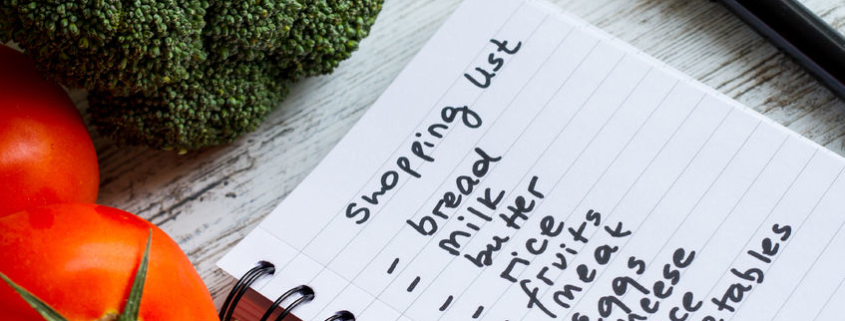 Shopping List
- bread
- milk
- butter
- rice
fruits
meat
eggs
heese
ce
etables